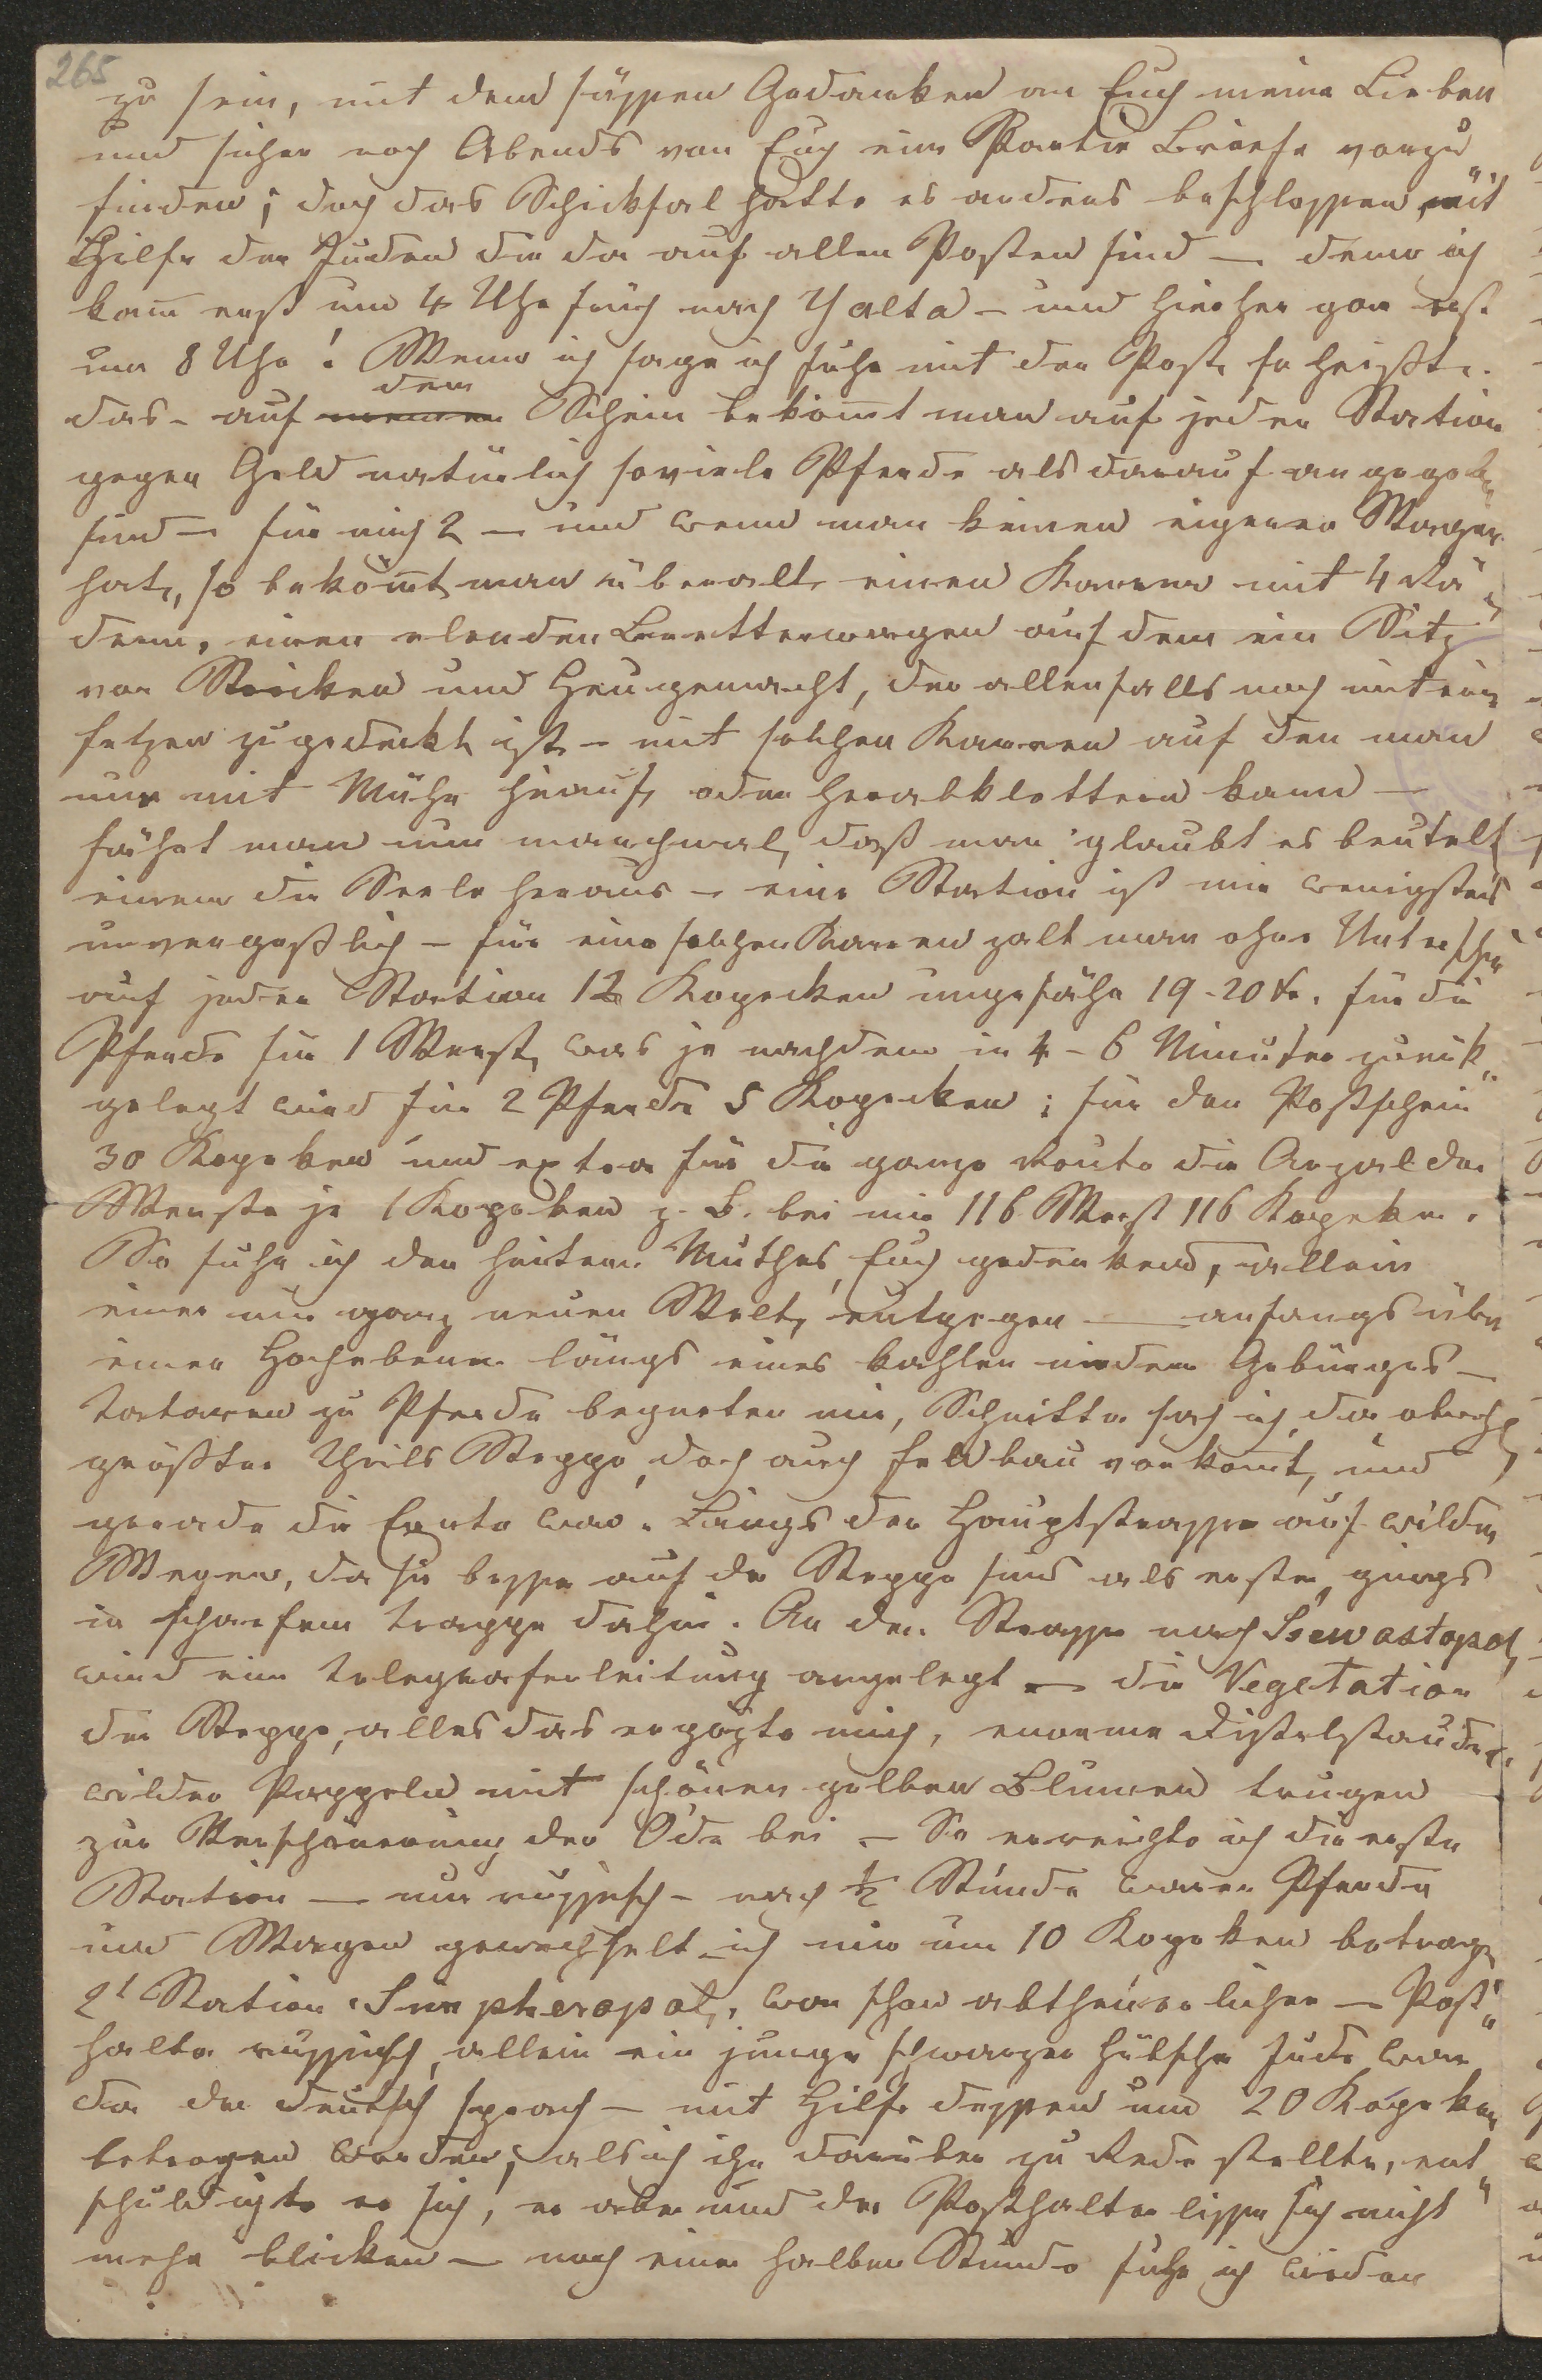 265
zu sein, mit dem süssen Gedanken an Euch meine Lieben
und sicher noch Abends von Euch eine Partie Briefe vorzu„
finden; doch das Schicksal hatte es anders beschlossen, mit
Hilfe der Juden die da auf allen Posten sind – denn ich
kam̄ erst um 4 Uhr früh nach Yalta – und hierher gar erst
um 8 Uhr! Wenn ich sage ich fuhr mit der Post, so heißt
dem
das – auf Schein bekom̄t man auf jeder Station
gegen Geld natürlich soviele Pferde als darauf angegeben
sind – für mich 2 – und wenn man keinen eigenen Wagen
hat, so bekom̄t man überall einen Karren mit 4 Rä„
dern, einen elenden Bretterwagen auf dem ein Sitz
von Stricken und Heu gemacht, der allenfalls noch mit ein
Fetzen zugedeckt ist – mit solchen Karren auf den man
nur mit Mühe hinauf oder herabklettern kann –
fährt man nun manchmal, daß man glaubt es beutelt
einem die Seele heraus – eine Station ist mir wenigstens
unvergeßlich – für eine solchen Karren zalt man ohne Unterschied
auf jeder Station 12 Kopecken ungefähr 19-20 kr. für die
Pferde für 1 Werst, was je nachdem in 4 – 6 Minuten zurük„
gelegt wird für 2 Pferde 5 Kopecken; für den Postschein
30 Kopeken und extra für die ganze Route die Anzal der
Werste je 1 Kopeken z. B. bei mir 116 Werst 116 Kopeken.
So fuhr ich den heitern Muthes, Euch gedenkend, allein
einer mir ganz neuen Welt, entgegen — anfangs über
einer Hochebene längs eines kahlen niedern Gebürges –
Tartaren zu Pferde begneten mir, Schnitter sah ich, da obwohl
größten Theils Steppe, doch auch Feldbau vorkom̄t, und
gerade die Ernte war. Längs der Hauptstrasse auf wilden
Wegen, da sie besser auf der Steppe sind als erstere, gings
in scharfem Trappe dahin. An der Strasse nach Ssewastopol
wird eine Telegrafenleitung angelegt – die Vegetation
der Steppe, alles das ergözte mich, enorme Distelstauden
wilder Pappeln mit schönen gelben Blumen trugen
zur Verschönerung der Öde bei – So erreichte ich die erste
Station — nur russisch – nach ½ Stunde waren Pferde
und Wagen gewechselt – ich nur um 10 Kopeken betrogen
2t Station Simpheropol, war schon abtheuerlicher — Post„
halter russisch, allein ein junge schwarzer hübscher Jude war
da der deutsch sprach – mit Hilfe dessen um 20 Kopeken
betrogen worden; als ich ihn darüber zu Rede stellte, ent„
schuldigte er sich, er aber und der Posthalter liessen sich nicht
mehr blicken – nach einer halben Stunde fuhr ich wieder